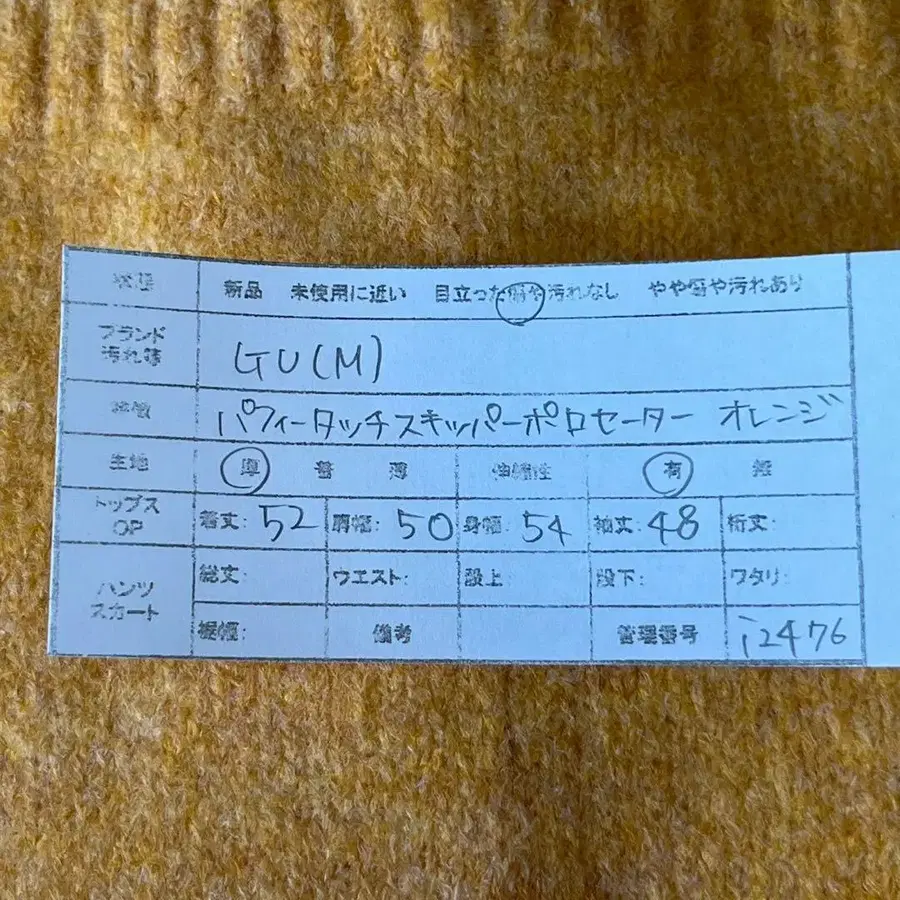 状態 新品 未使用に近い 目立った傷や汚れなし やや傷や汚れあり
ブランド
汚れ等
GU(M)
特徴 パフィータッチスキッパーポロセーター オレンジ
生地 厚 普 薄 伸縮性 有 無
トップス
OP
着丈: 52 肩幅: 50 身幅: 54 袖丈: 48 裄丈:
パンツ
スカート
総丈: ウエスト: 股上: 股下: ワタリ:
裾幅: 備考 管理番号 i2476